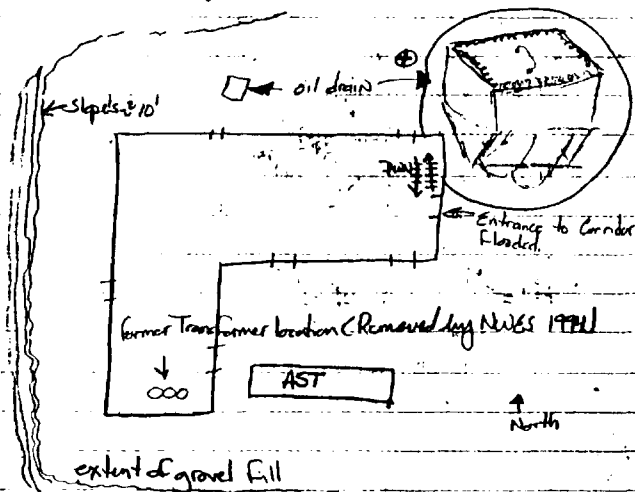 oil drain
Slopes ≈ 10'
DWN
Entrance to Corridor
Flooded.
former Transformer location (Removed by NWES 1994)
AST
North
extent of gravel fill